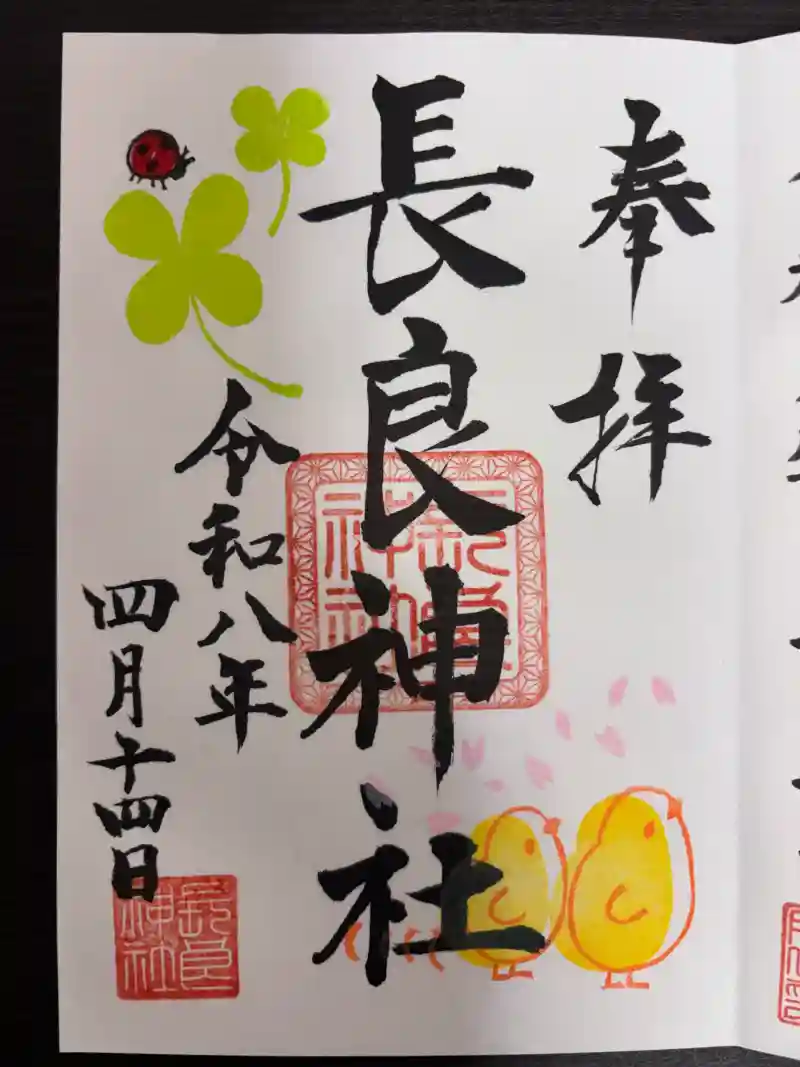 奉拝
長良神社
令和八年
四月十四日
長良
神社
長良
神社